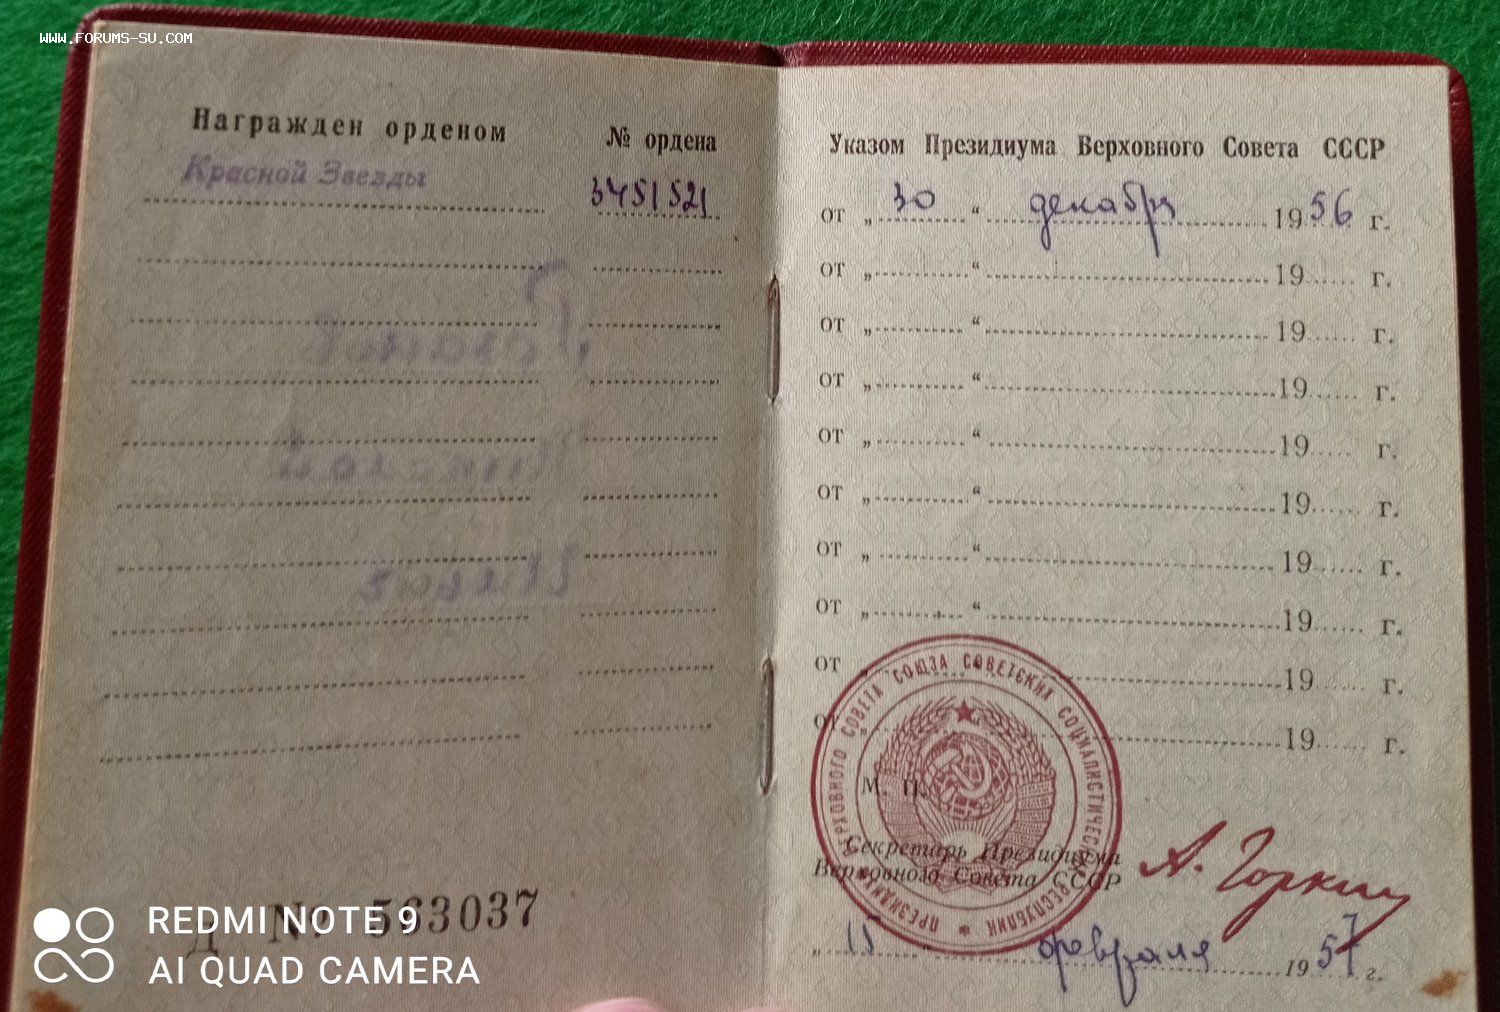 WWW.FORUMS-SU.COM
Награжден орденом № ордена
Красной Звезды 3451521
Указом Президиума Верховного Совета СССР
от „ 30 “ декабря 1956 г.
от „ “ 19 г.
от „ “ 19 г.
от „ “ 19 г.
от „ “ 19 г.
от „ “ 19 г.
от „ “ 19 г.
от „ “ 19 г.
от 19 г.
от 19 г.
М. П.
Секретарь Президиума
Верховного Совета СССР
А. Горкин
„ 15 “ февраля 1957 г.
ПРЕЗИДИУМ ВЕРХОВНОГО СОВЕТА СОЮЗА СОВЕТСКИХ СОЦИАЛИСТИЧЕСКИХ РЕСПУБЛИК
Д № 563037
REDMI NOTE 9
AI QUAD CAMERA